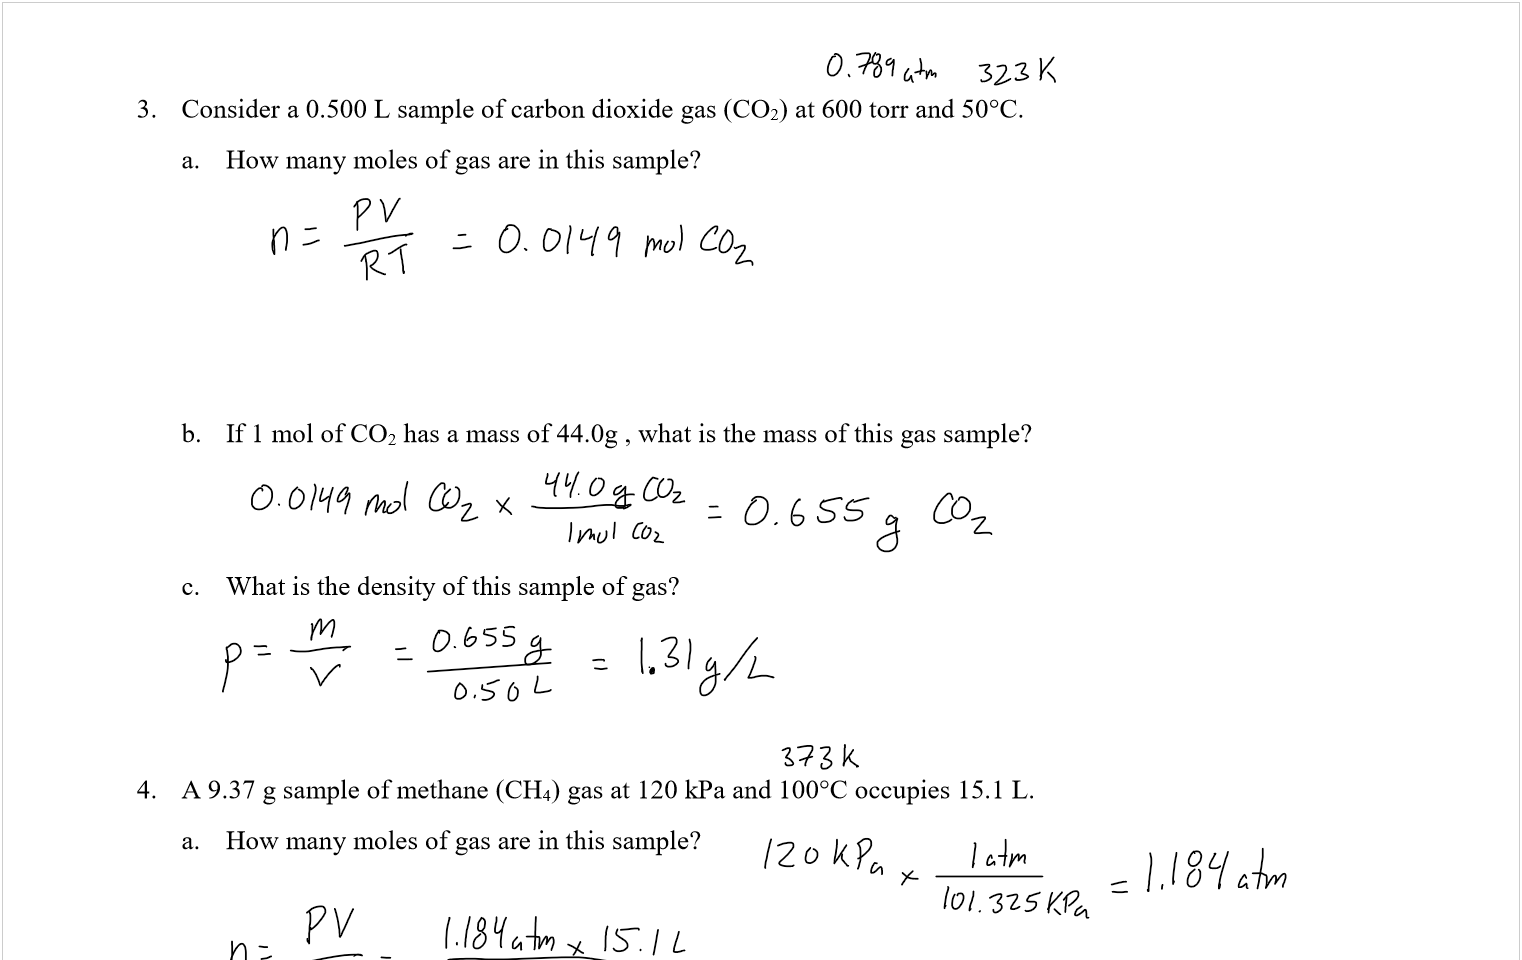 0.789 atm 323 K
3. Consider a 0.500 L sample of carbon dioxide gas (CO₂) at 600 torr and 50°C.
a. How many moles of gas are in this sample?
n = PV/RT = 0.0149 mol CO₂
b. If 1 mol of CO₂ has a mass of 44.0g , what is the mass of this gas sample?
0.0149 mol CO₂ × 44.0 g CO₂/1 mol CO₂ = 0.655 g CO₂
c. What is the density of this sample of gas?
ρ = m/V = 0.655 g/0.50 L = 1.31 g/L
373 K
4. A 9.37 g sample of methane (CH₄) gas at 120 kPa and 100°C occupies 15.1 L.
a. How many moles of gas are in this sample?
120 kPa × 1 atm/101.325 KPa = 1.184 atm
n = PV = 1.184 atm × 15.1 L